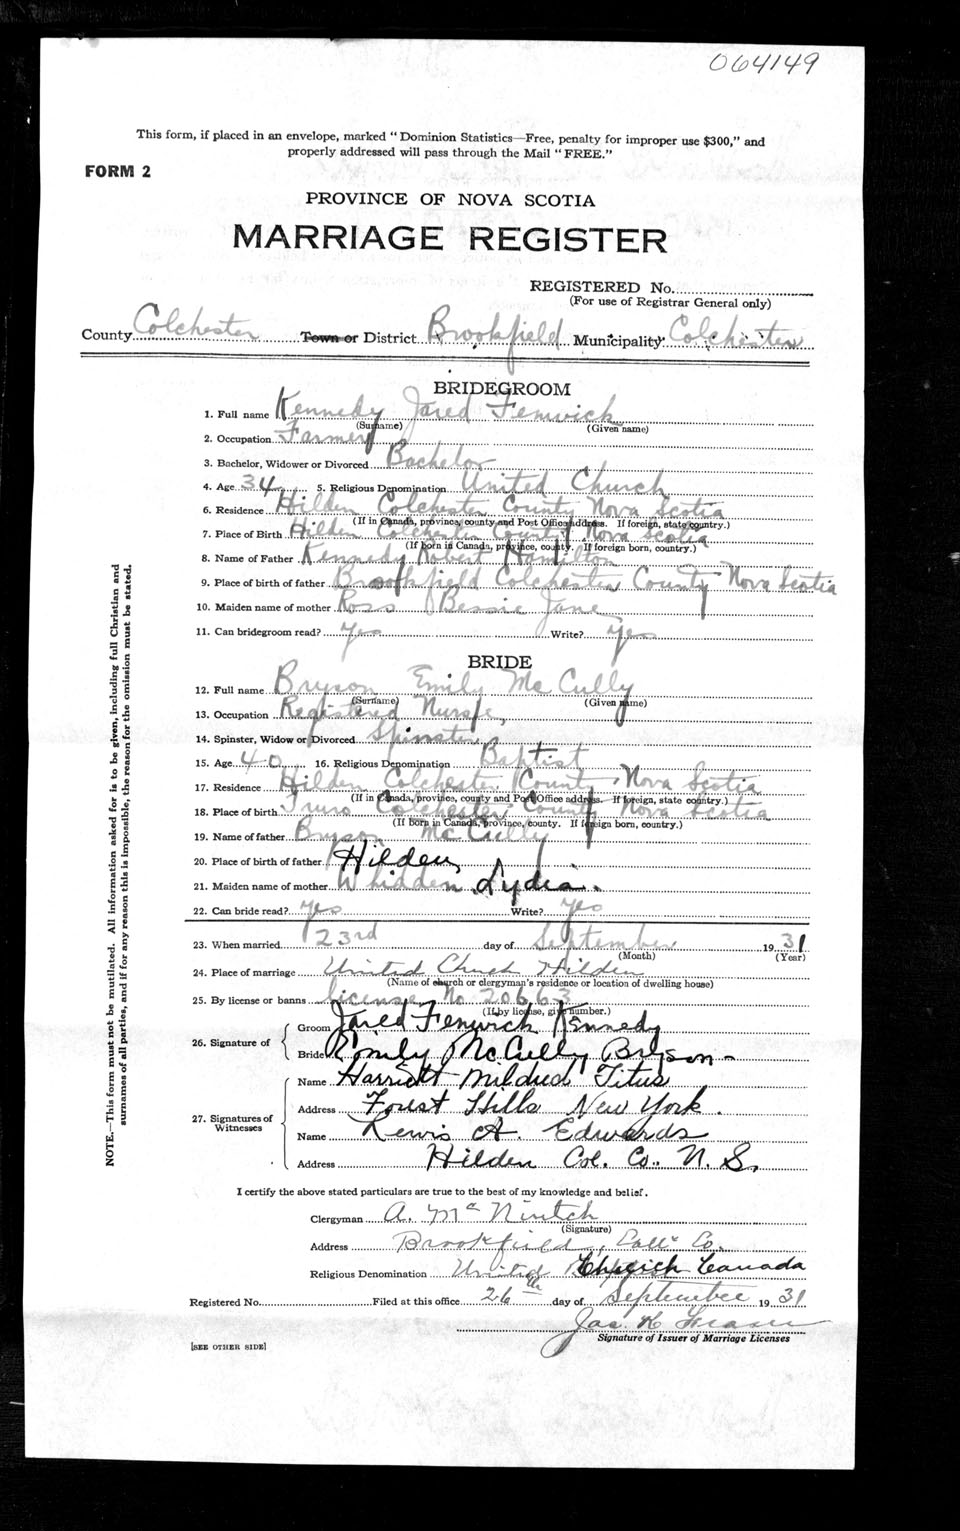 064149
This form, if placed in an envelope, marked "Dominion Statistics—Free, penalty for improper use $300," and
properly addressed will pass through the Mail "FREE."
FORM 2
PROVINCE OF NOVA SCOTIA
MARRIAGE REGISTER
REGISTERED No.
(For use of Registrar General only)
County Colchester Town or District Brookfield Municipality Colchester
BRIDEGROOM
1. Full name Kennedy Jared Fenwick
(Surname) (Given name)
2. Occupation Farmer
3. Bachelor, Widower or Divorced Bachelor
4. Age 34 5. Religious Denomination United Church
6. Residence Hilden Colchester County Nova Scotia
(If in Canada, province, county and Post Office address. If foreign, state country.)
7. Place of Birth Hilden Colchester County Nova Scotia
(If born in Canada, province, county. If foreign born, country.)
8. Name of Father Kennedy Robert Hamilton
9. Place of birth of father Brookfield Colchester County Nova Scotia
10. Maiden name of mother Ross Bessie Jane
11. Can bridegroom read? Yes Write? Yes
BRIDE
12. Full name Bryson Emily McCully
(Surname) (Given name)
13. Occupation Registered Nurse
14. Spinster, Widow or Divorced Spinster
15. Age 40 16. Religious Denomination Baptist
17. Residence Hilden Colchester County Nova Scotia
(If in Canada, province, county and Post Office address. If foreign, state country.)
18. Place of birth Truro Colchester County Nova Scotia
(If born in Canada, province, county. If foreign born, country.)
19. Name of father Bryson McCully
20. Place of birth of father Hilden,
21. Maiden name of mother Whidden Lydia.
22. Can bride read? Yes Write? Yes
23. When married 23rd day of September 1931
(Month) (Year)
24. Place of marriage United Church Hilden
(Name of church or clergyman's residence or location of dwelling house)
25. By license or banns license No 20663
(If by license, give number.)
26. Signature of Groom Jared Fenwick Kennedy
Bride Emily McCully Bryson
27. Signatures of Witnesses
Name Harriett Mildred Titus
Address Forest Hills New York.
Name Lewis A. Edwards
Address Hilden Col. Co. N. S.
I certify the above stated particulars are true to the best of my knowledge and belief.
Clergyman A. McNintch
(Signature)
Address Brookfield, Co.
Religious Denomination United Church Canada
Registered No. Filed at this office 26th day of September 1931
Jas. H Fraser
Signature of Issuer of Marriage Licenses
[SEE OTHER SIDE]
NOTE.—This form must not be mutilated. All information asked for is to be given, including full Christian and
surnames of all parties, and if for any reason this is impossible, the reason for the omission must be stated.